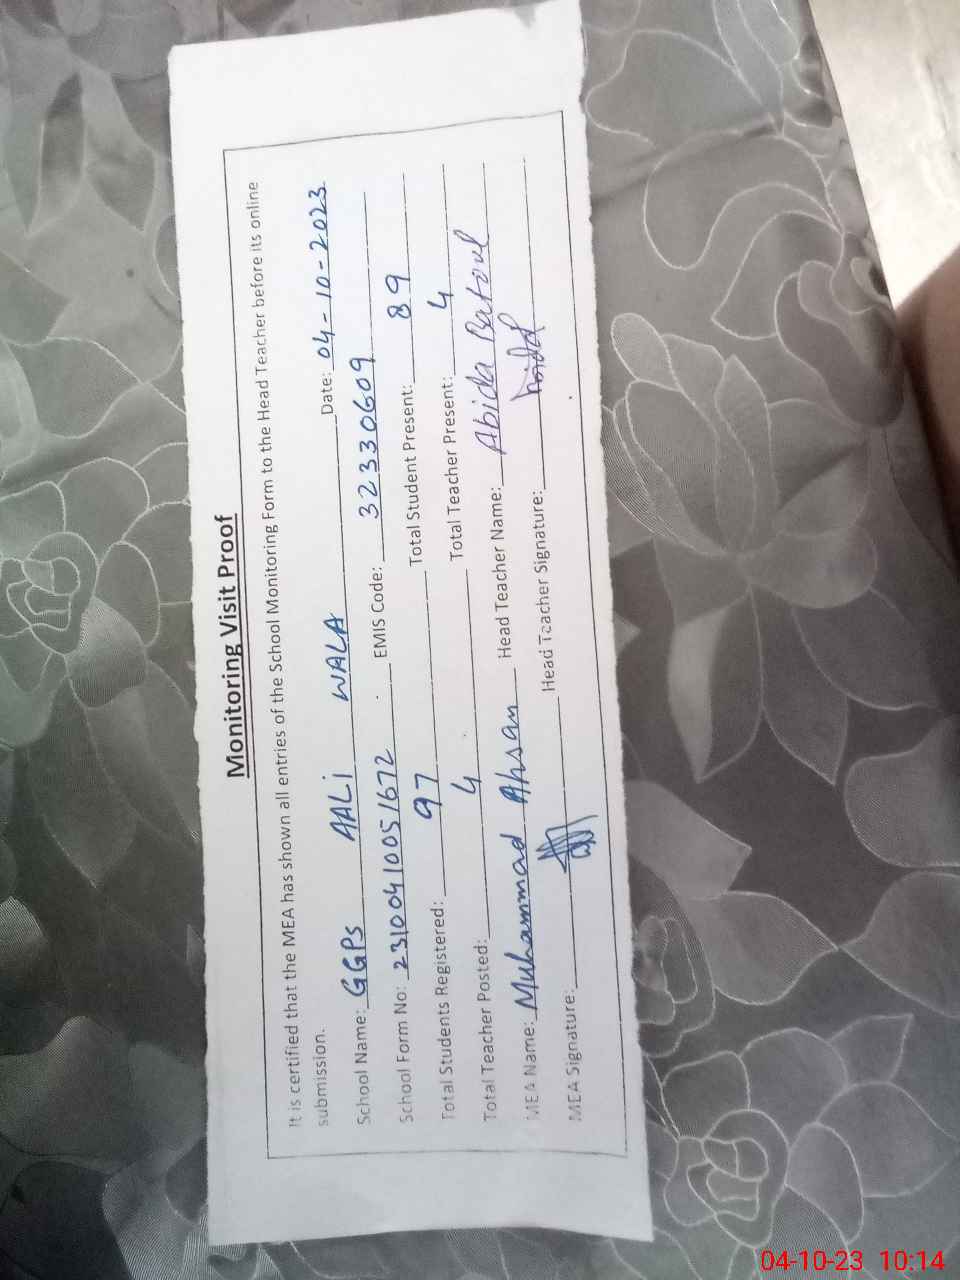 Monitoring Visit Proof
It is certified that the MEA has shown all entries of the School Monitoring Form to the Head Teacher before its online
submission.
School Name: GGPS AALi WALA Date: 04-10-2023
School Form No: 23100410051672 EMIS Code: 32330609
Total Students Registered: 97 Total Student Present: 89
Total Teacher Posted: 4 Total Teacher Present: 4
MEA Name: Muhammad Ahsan Head Teacher Name: Abida Batool
MEA Signature: Head Teacher Signature:
04-10-23 10:14